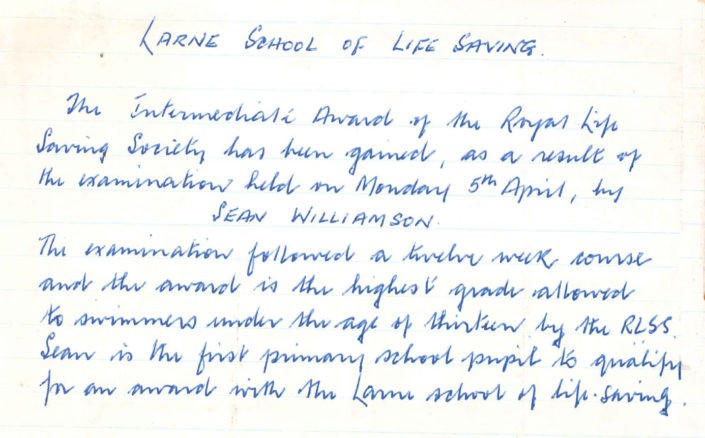 LARNE SCHOOL OF LIFE SAVING.
The Intermediate Award of the Royal Life
Saving Society has been gained, as a result of
the examination held on Monday 5th April, by
SEAN WILLIAMSON.
The examination followed a twelve week course
and the award is the highest grade allowed
to swimmers under the age of thirteen by the RLSS.
Sean is the first primary school pupil to qualify
for an award with the Larne school of life-saving.